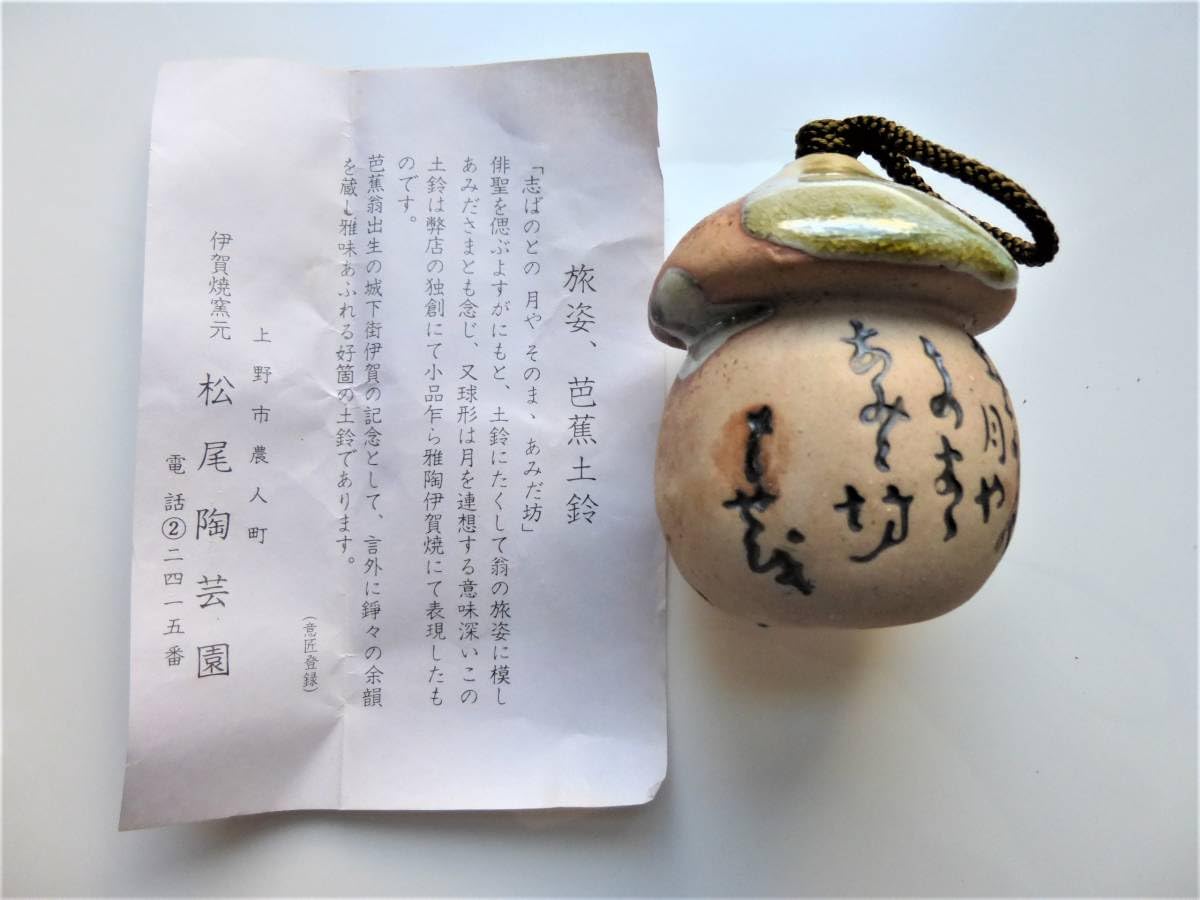 旅姿、芭蕉土鈴
「志ばのとの 月や そのまゝ あみだ坊」
俳聖を偲ぶよすがにもと、土鈴にたくして翁の旅姿に模し
あみださまとも念じ、又球形は月を連想する意味深いこの
土鈴は弊店の独創にて小品乍ら雅陶伊賀焼にて表現したも
のです。
芭蕉翁出生の城下街伊賀の記念として、言外に錚々の余韻
を蔵し雅味あふれる好箇の土鈴であります。
(意匠登録)
上野市農人町
伊賀焼窯元 松尾陶芸園
電話②二四一五番
月や
そのまゝ
あみだ坊
はせを